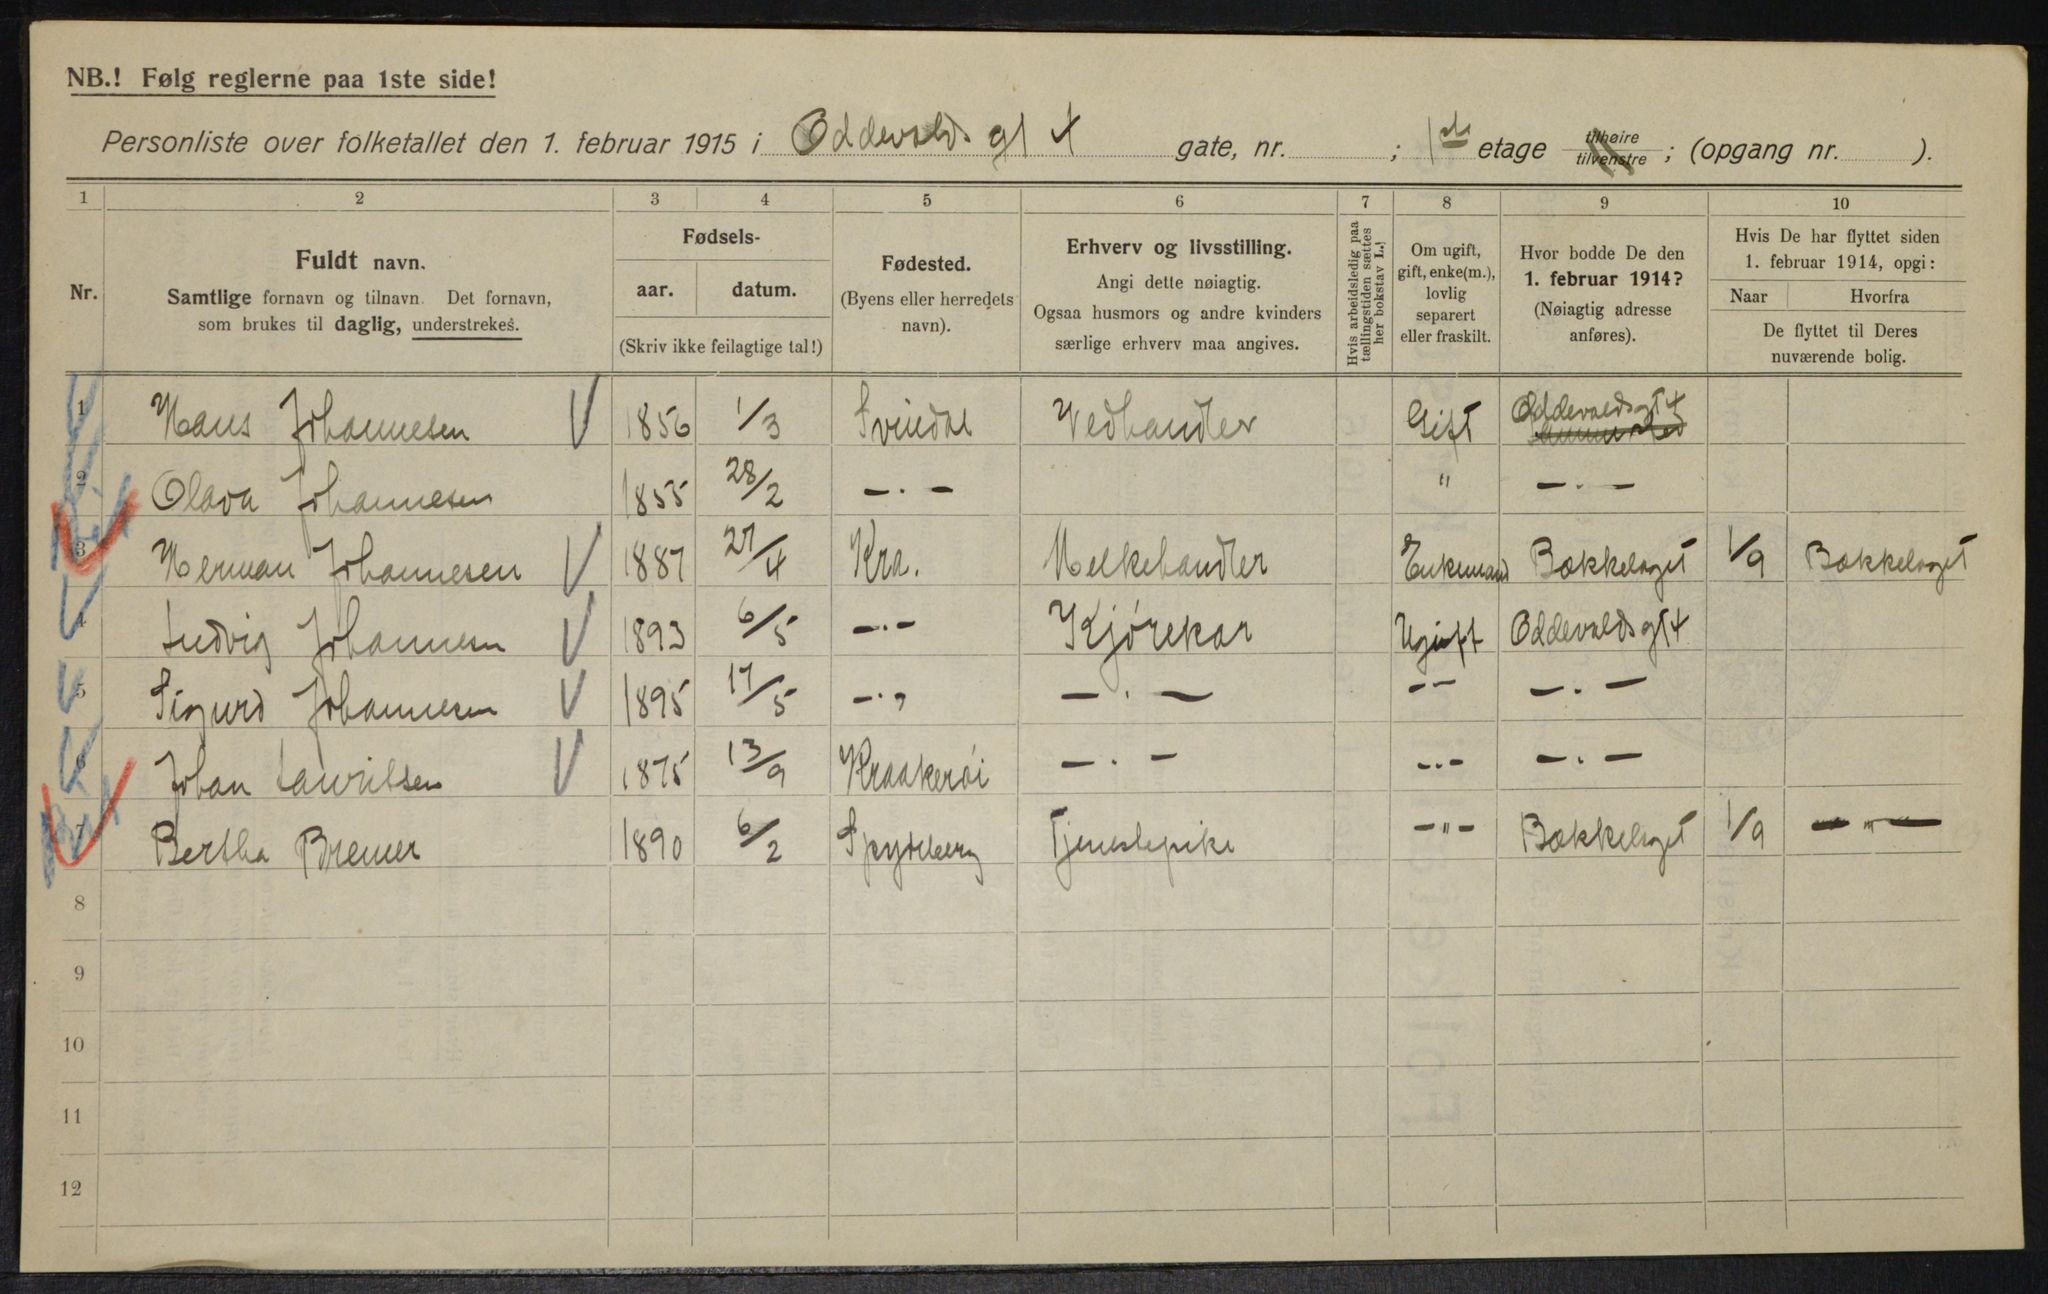 NB.! Følg reglerne paa 1ste side!
Personliste over folketallet den 1. februar 1915 i Oddevalds gt 4 gate, nr. ; 1ste etage tilhøire tilvenstre ; (opgang nr. ).
1 2 3 4 5 6 7 8 9 10
Nr. Fuldt navn. Samtlige fornavn og tilnavn. Det fornavn, som brukes til daglig, understrekes.
Fødsels- aar. datum. (Skriv ikke feilagtige tal!)
Fødested. (Byens eller herredets navn).
Erhverv og livsstilling. Angi dette nøiagtig. Ogsaa husmors og andre kvinders særlige erhverv maa angives.
Hvis arbeidsledig paa tællingstiden sættes her bokstav L.)
Om ugift, gift, enke(m.), lovlig separert eller fraskilt.
Hvor bodde De den 1. februar 1914? (Nøiagtig adresse anføres).
Hvis De har flyttet siden 1. februar 1914, opgi: Naar Hvorfra De flyttet til Deres nuværende bolig.
1 Hans Johannesen V 1856 1/3 Svindal Vedhandler Gift Oddevaldsgt 4
2 Olava Johannesen 1855 28/2 —·— " —·—
3 Herman Johannesen V 1887 27/4 Kra. Melkehandler Enkemand Bækkelaget 1/9 Bækkelaget
4 Ludvig Johannesen V 1893 6/5 —·— Kjørekar Ugift Oddevaldsgt 4
5 Sigurd Johannesen V 1895 17/5 —·, —·— —— —·—
6 Johan Lauritsen V 1875 13/9 Kraakerøi —·— —··— —·—
7 Bertha Bremer 1890 6/2 Spydeberg Tjenestepike —"— Bækkelaget 1/9 —"—
8
9
10
11
12